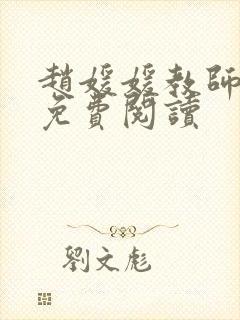 趙媛媛教師
免費閱讀
劉文彪